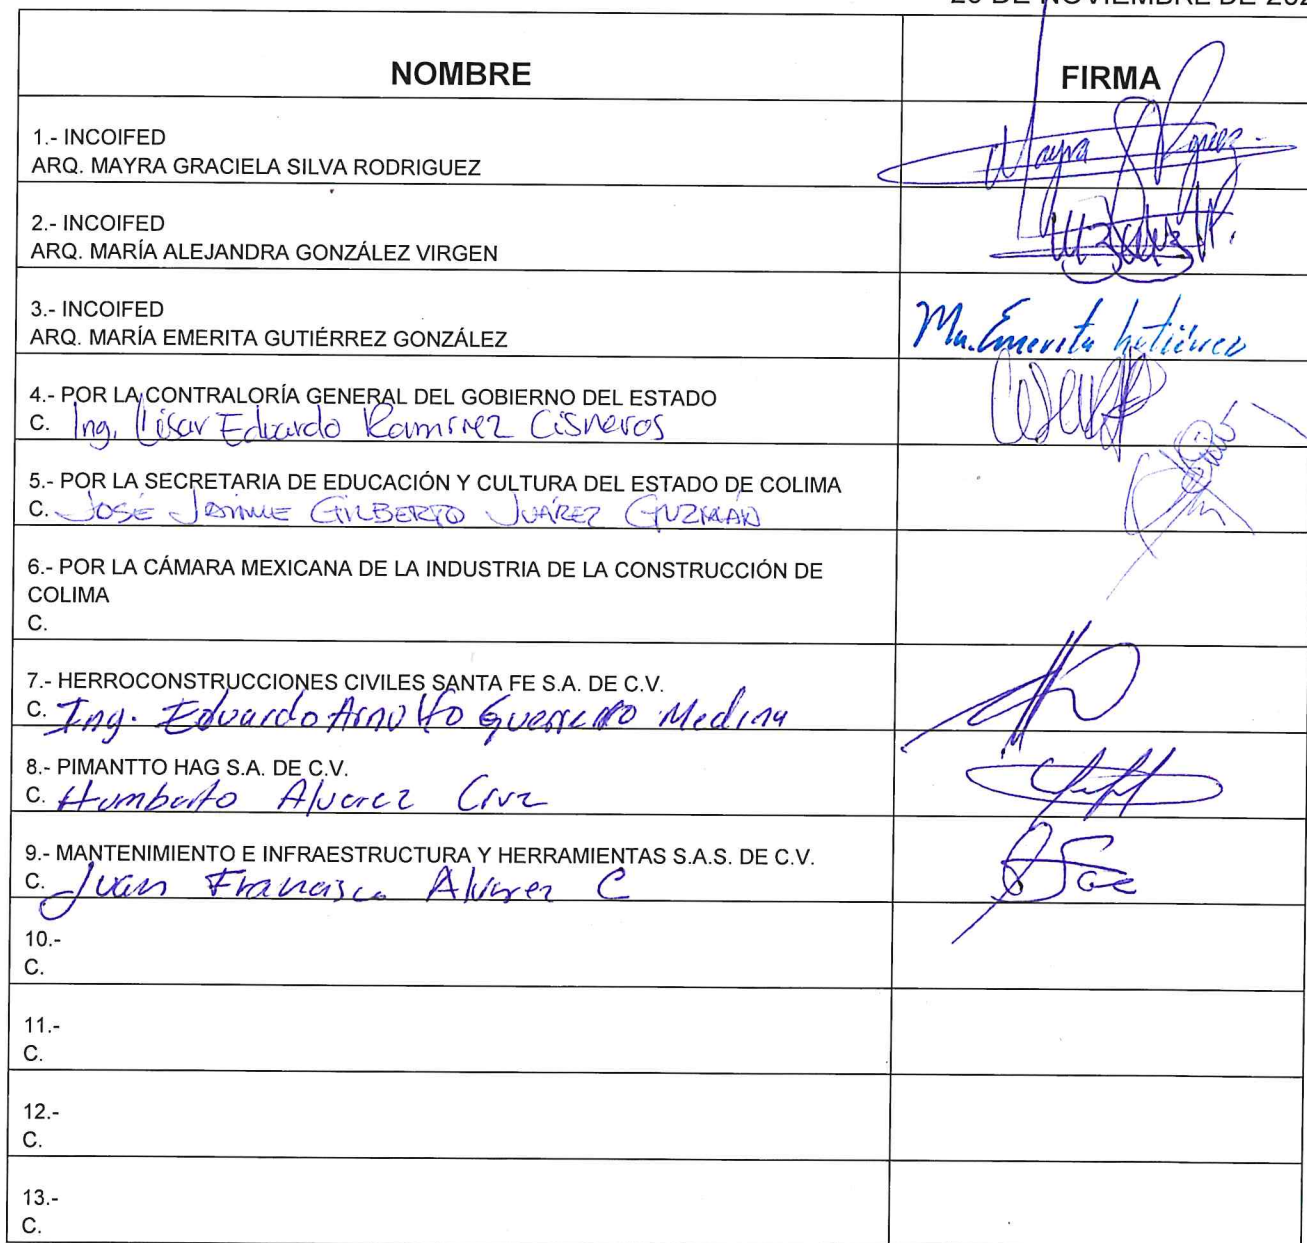 DE NOVIEMBRE DE
NOMBRE
FIRMA
1.- INCOIFED
ARQ. MAYRA GRACIELA SILVA RODRIGUEZ
2.- INCOIFED
ARQ. MARÍA ALEJANDRA GONZÁLEZ VIRGEN
3.- INCOIFED
ARQ. MARÍA EMERITA GUTIÉRREZ GONZÁLEZ
Ma. Emerita Gutiérrez
4.- POR LA CONTRALORÍA GENERAL DEL GOBIERNO DEL ESTADO
C. Ing. César Eduardo Ramírez Cisneros
5.- POR LA SECRETARIA DE EDUCACIÓN Y CULTURA DEL ESTADO DE COLIMA
C. JOSÉ JAIME GILBERTO JUÁREZ GUZMÁN
6.- POR LA CÁMARA MEXICANA DE LA INDUSTRIA DE LA CONSTRUCCIÓN DE
COLIMA
C.
7.- HERROCONSTRUCCIONES CIVILES SANTA FE S.A. DE C.V.
C. Ing. Eduardo Arnulfo Guerrero Medina
8.- PIMANTTO HAG S.A. DE C.V.
C. Humberto Alvarez Cruz
9.- MANTENIMIENTO E INFRAESTRUCTURA Y HERRAMIENTAS S.A.S. DE C.V.
C. Juan Francisco Alvarez C
10.-
C.
11.-
C.
12.-
C.
13.-
C.